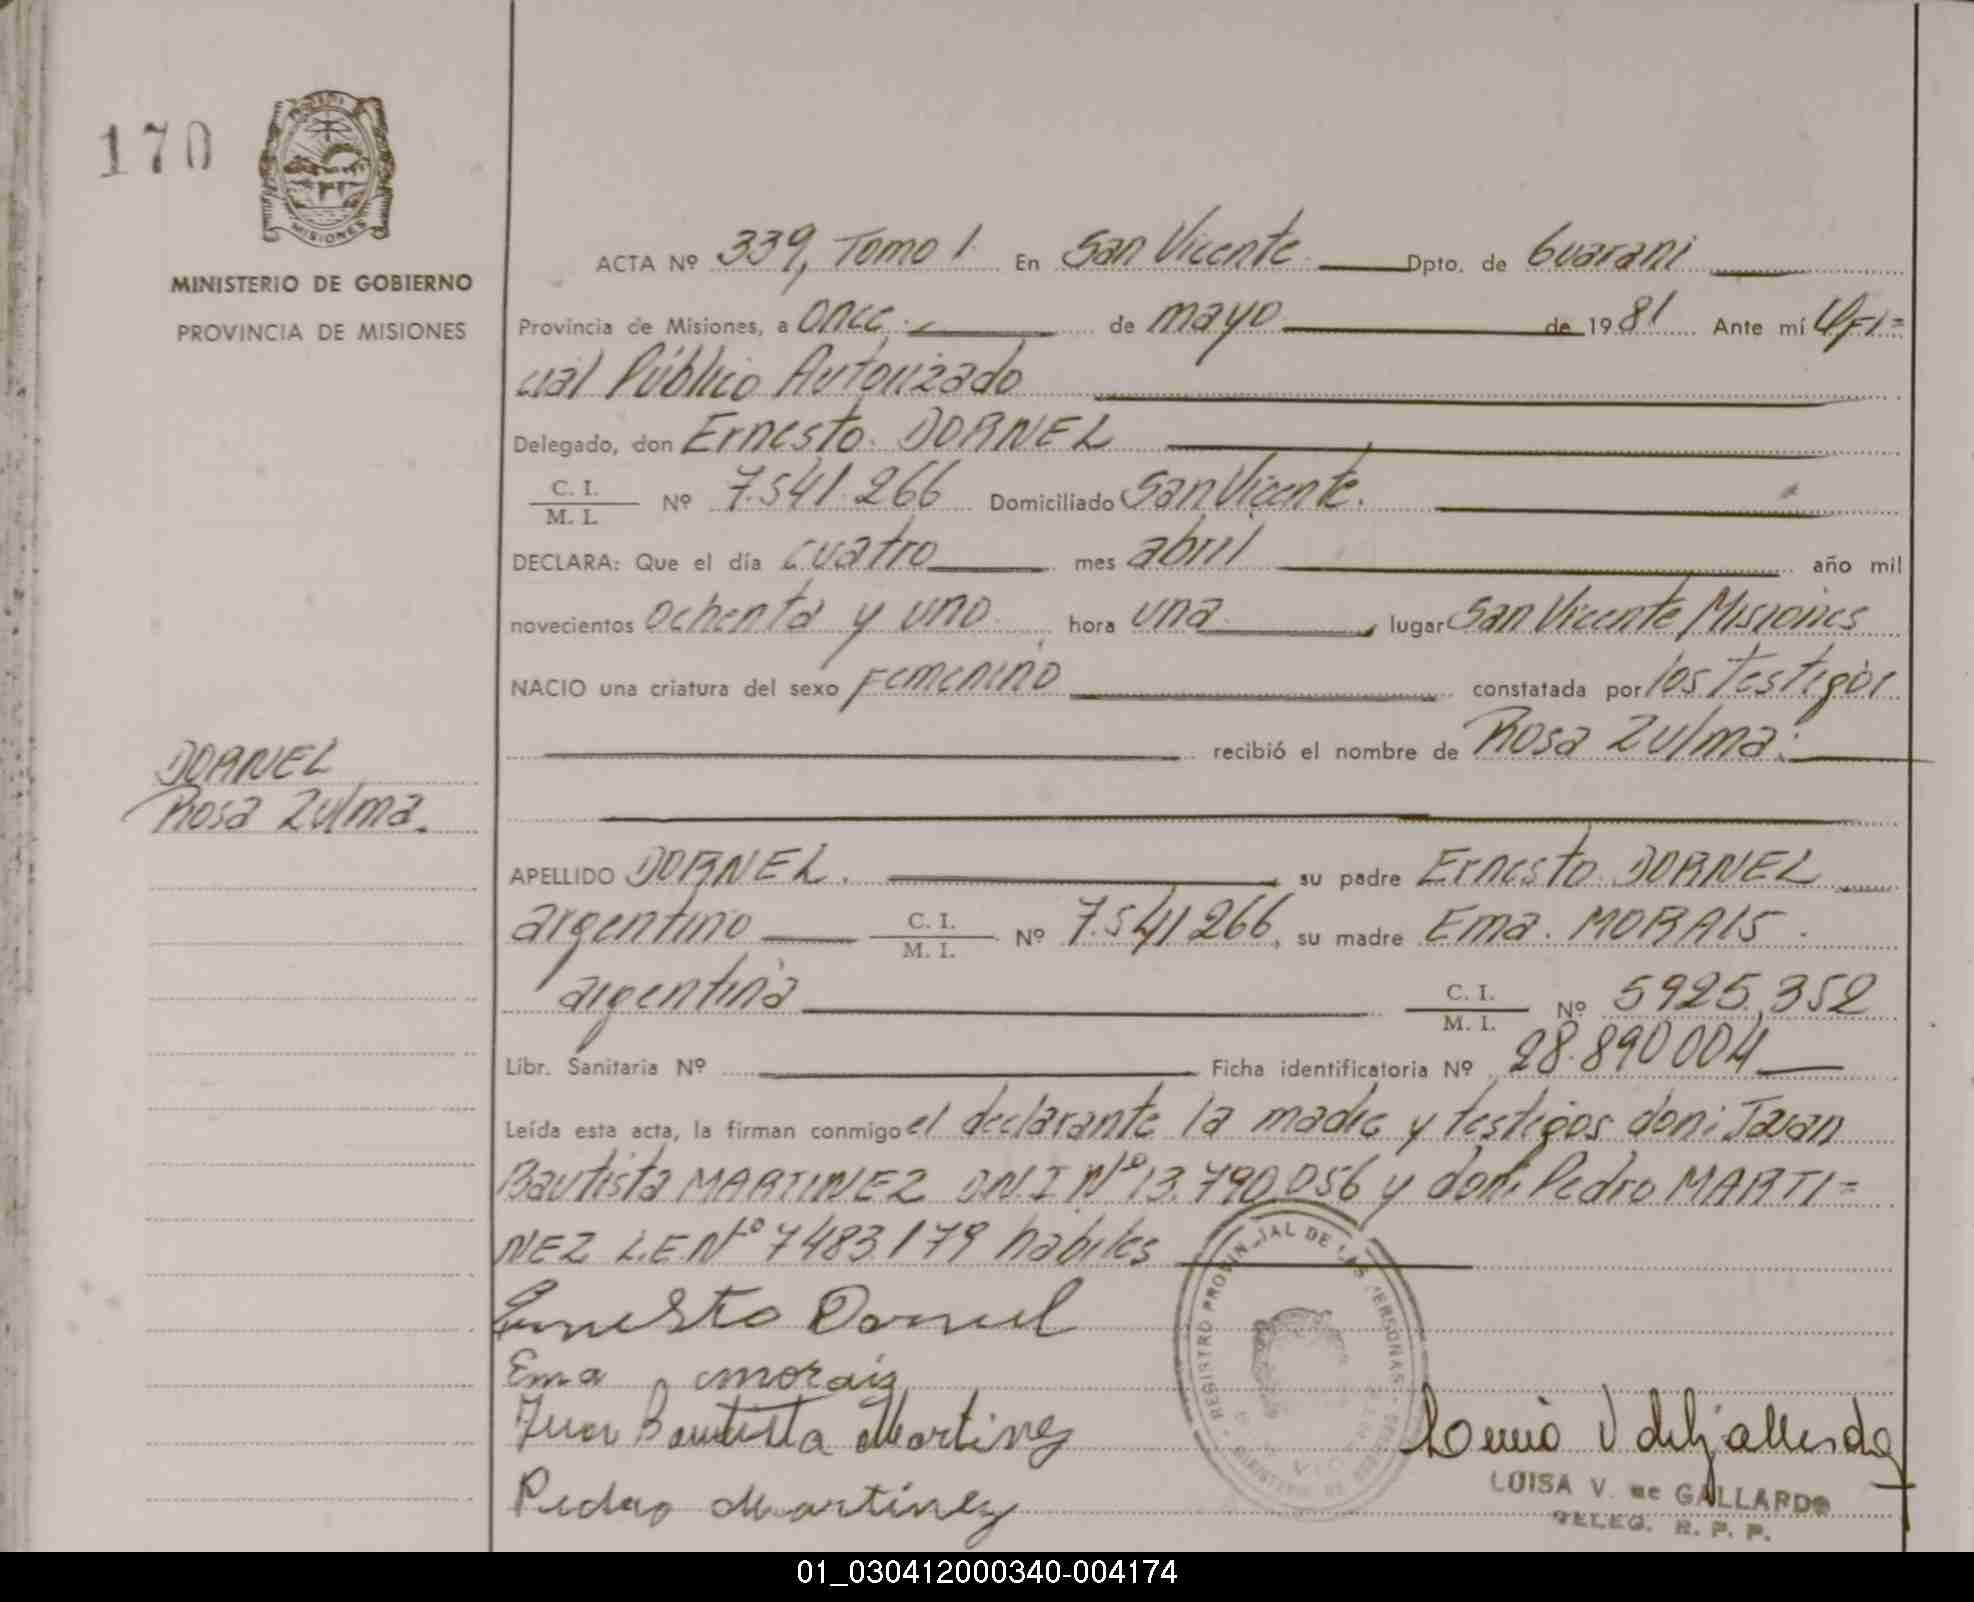 170
MISIONES
MINISTERIO DE GOBIERNO
PROVINCIA DE MISIONES
ACTA Nº 339, Tomo 1. En San Vicente Dpto. de Guarani
Provincia de Misiones, a once de mayo de 1981 Ante mí Ofi=
cial Público Autorizado
Delegado, don Ernesto DORNEL
C. I.
M. I. Nº 7.541.266 Domiciliado San Vicente.
DECLARA: Que el día cuatro mes abril año mil
novecientos ochenta y uno hora una lugar San Vicente Misiones
NACIO una criatura del sexo Femenino constatada por los Testigos
recibió el nombre de Rosa Zulma.
DORNEL
Rosa Zulma.
APELLIDO DORNEL. su padre Ernesto DORNEL
argentino C. I. M. I. Nº 7.541.266, su madre Ema. MORAIS.
argentina C. I. M. I. Nº 5925.352
Libr. Sanitaria Nº Ficha identificatoria Nº 28.890004
Leída esta acta, la firman conmigo el declarante la madre y testigos don: Juan
Bautista MARTINEZ D.N.I Nº 13.790.056 y don: Pedro MARTI=
NEZ L.E.Nº 7483.179 habiles
Ernesto Dornel
Ema morais
Juan Bautista Martinez
Pedro Martinez
REGISTRO PROVINCIAL DE LAS PERSONAS
LUISA V. de GALLARDO
DELEG. R. P. P.
01_030412000340-004174